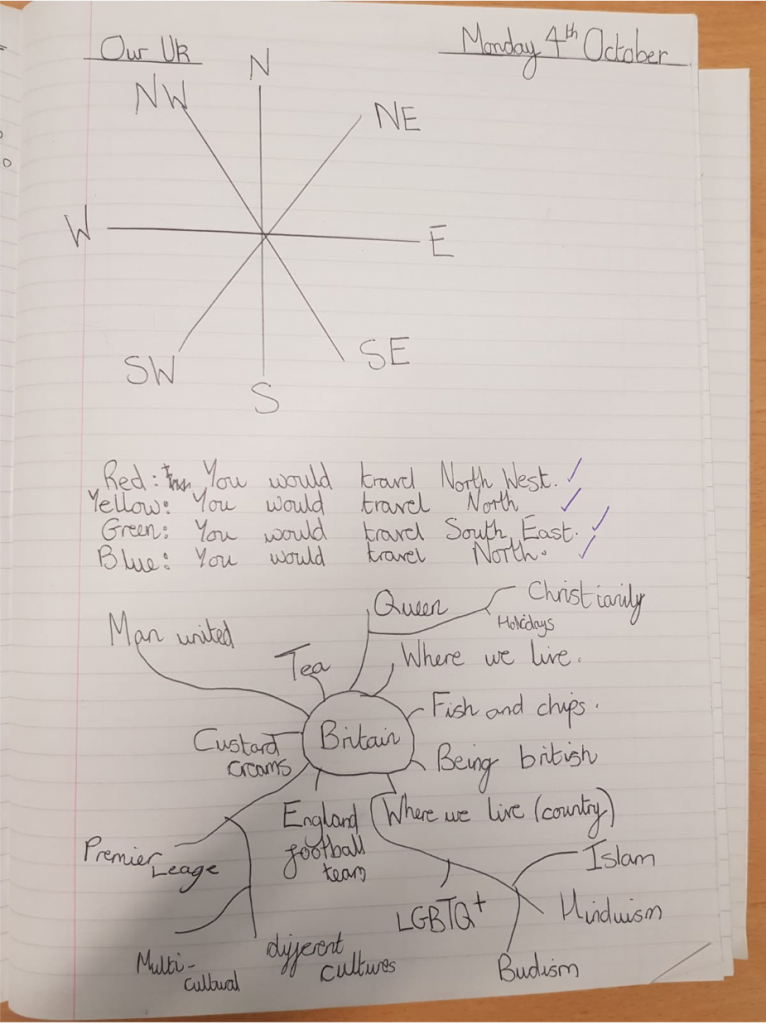 Our UK
Monday 4th October
N
NW
NE
W
E
SW
SE
S
Red: You would travel North West.
Yellow: You would travel North
Green: You would travel South East.
Blue: You would travel North.
Queen
Christianity
Holidays
Man united
Tea
Where we live.
Fish and chips.
Custard
creams
Britain
Being british
England
football
team
Where we live (country)
Premier
Leage
Islam
LGBTQ+
Hinduism
Multi-
cultural
different
cultures
Budism